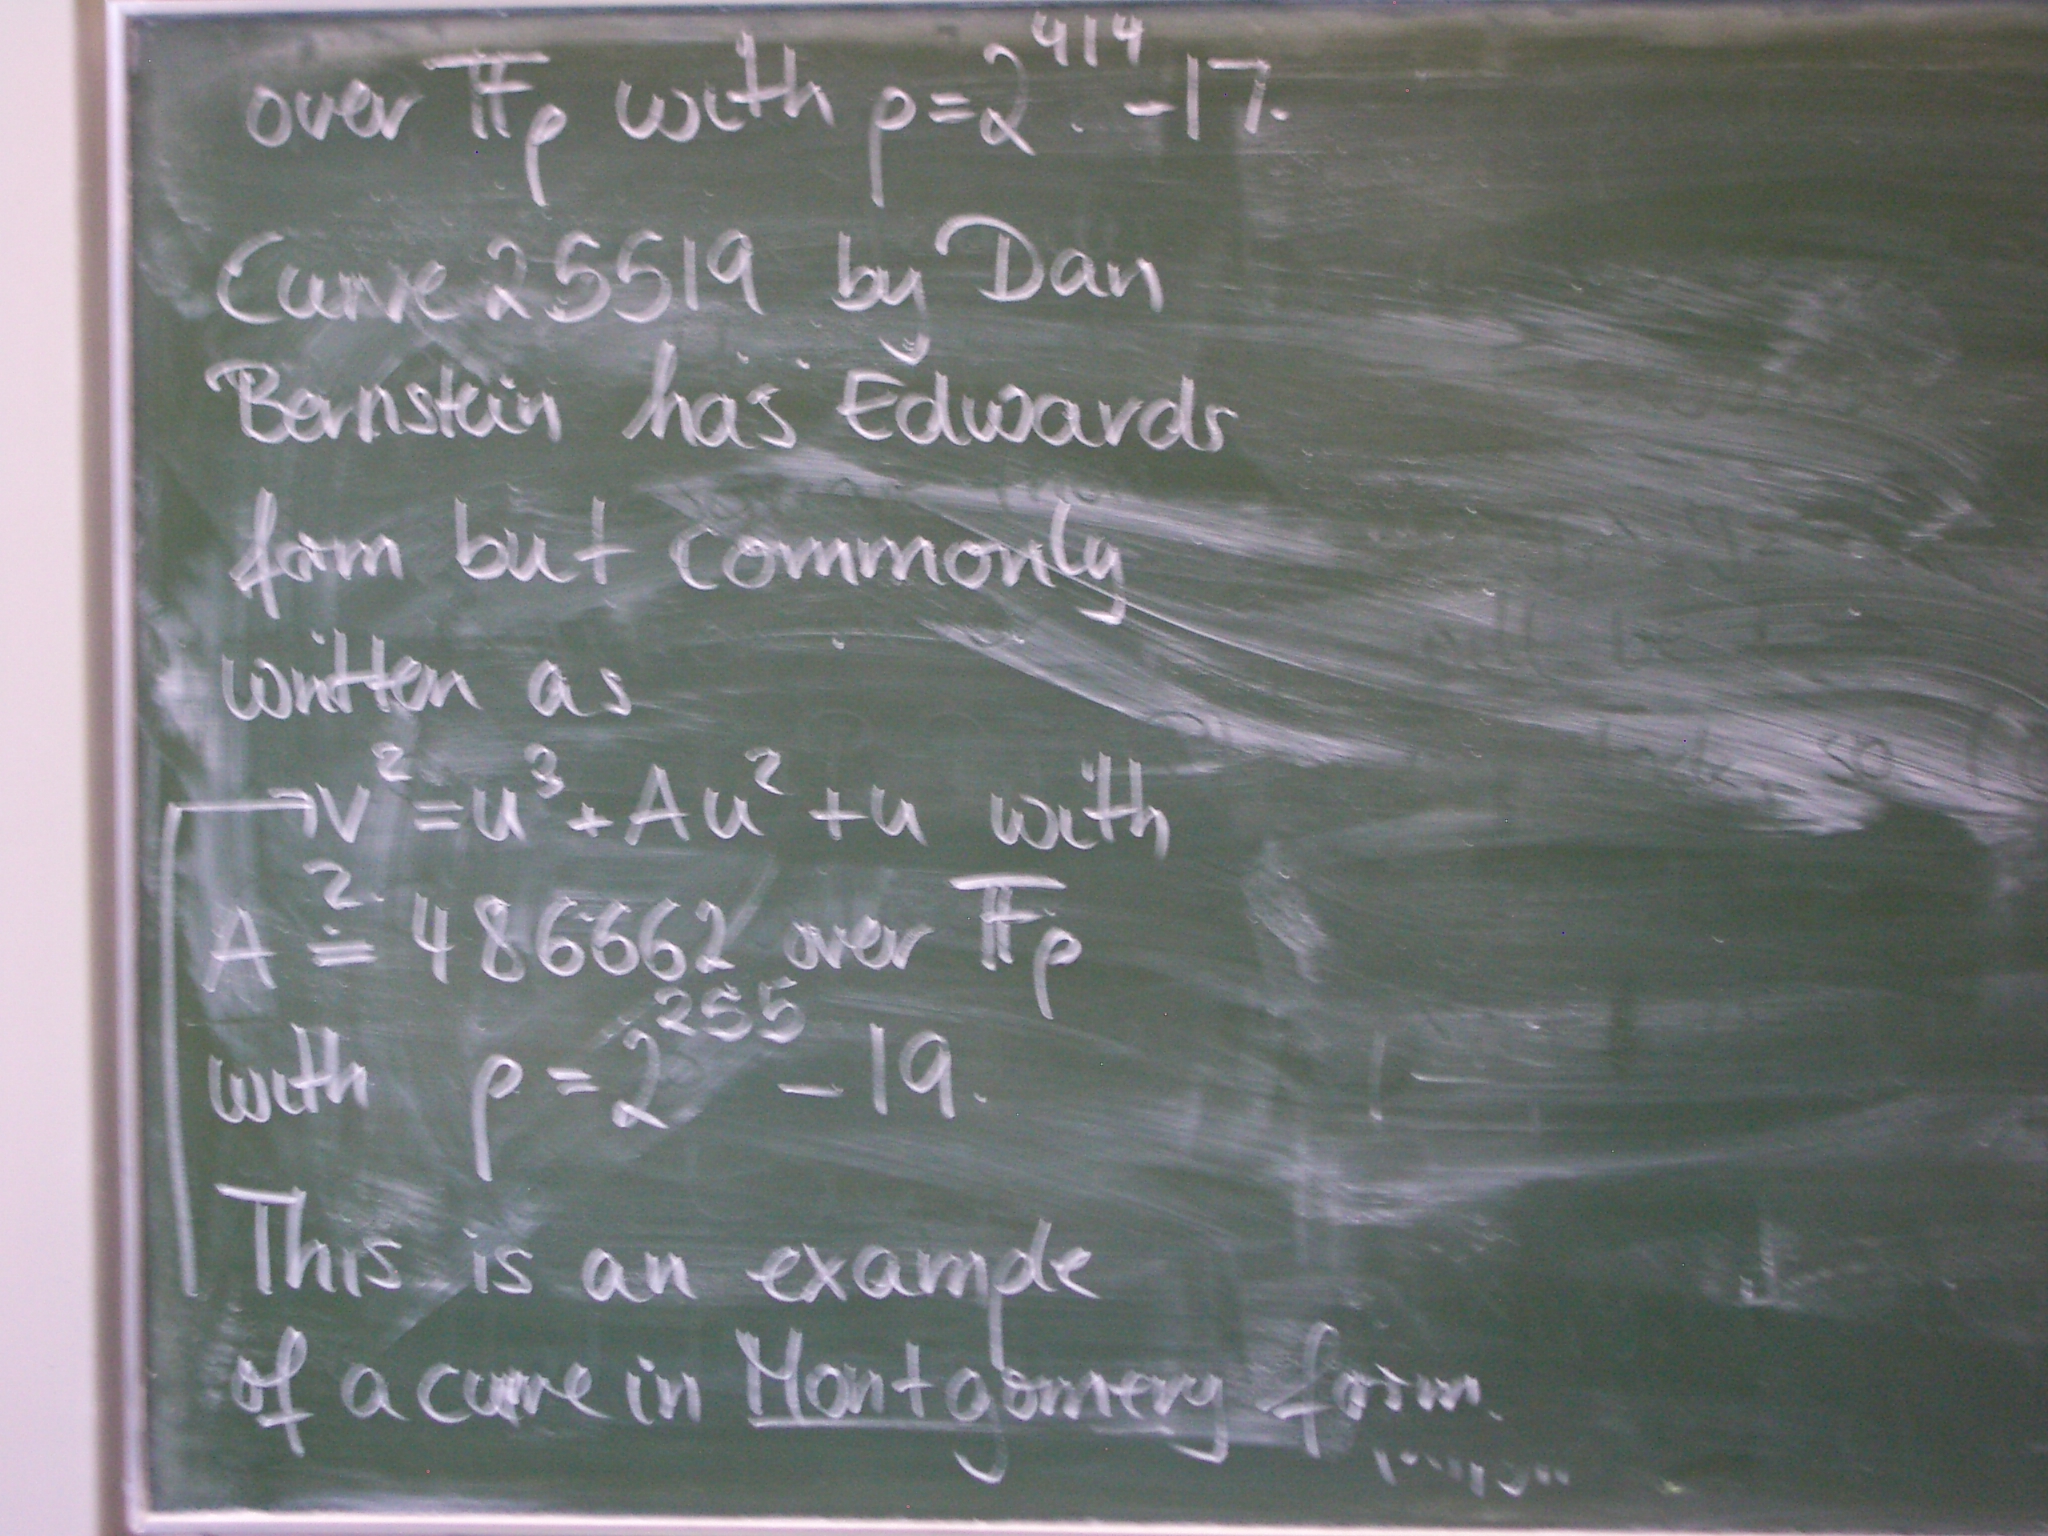 over 𝔽ₚ with p=2⁴¹⁴-17.
Curve25519 by Dan
Bernstein has Edwards
form but commonly
written as
v² = u³ + Au² + u with
A = 486662 over 𝔽ₚ
with p = 2²⁵⁵ - 19.
This is an example
of a curve in Montgomery form.